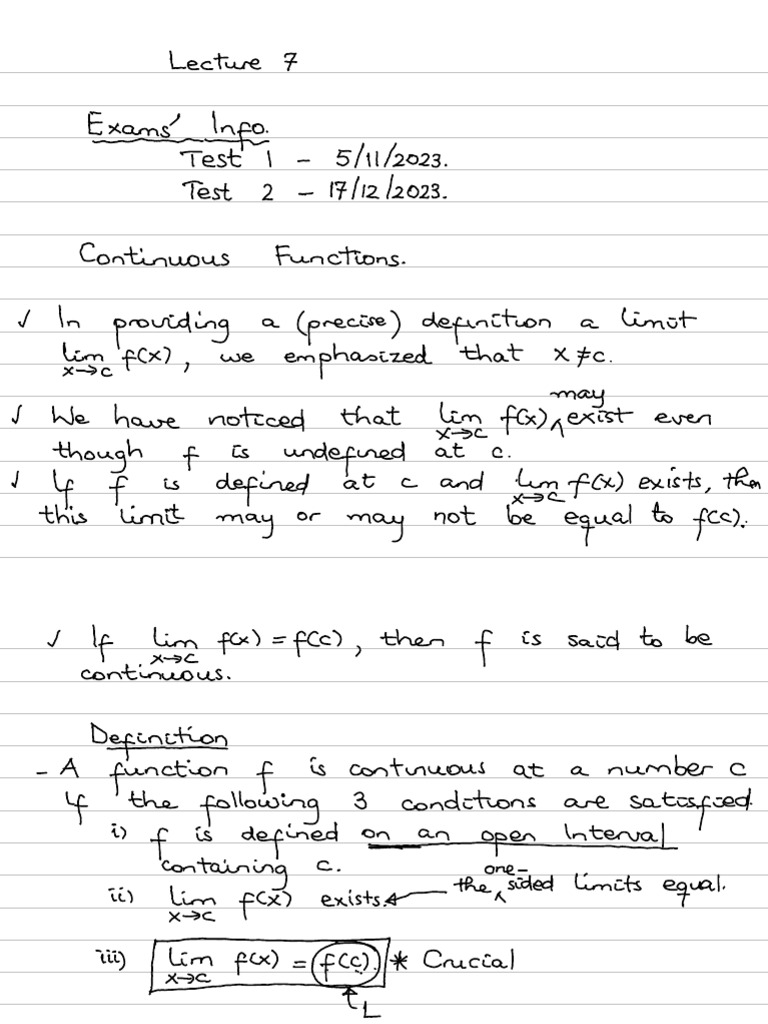 Lecture 7
Exams' Info.
Test 1 - 5/11/2023.
Test 2 - 17/12/2023.
Continuous Functions.
✓ In providing a (precise) definition a limit
lim x→c f(x), we emphasized that x ≠ c.
✓ We have noticed that lim x→c f(x) may exist even
though f is undefined at c.
✓ If f is defined at c and lim x→c f(x) exists, then
this limit may or may not be equal to f(c).
✓ If lim x→c f(x) = f(c), then f is said to be
continuous.
Definition
- A function f is continuous at a number c
if the following 3 conditions are satisfied.
i) f is defined on an open interval
containing c.
ii) lim x→c f(x) exists. ← the one-sided limits equal.
iii) lim x→c f(x) = f(c). * Crucial
L